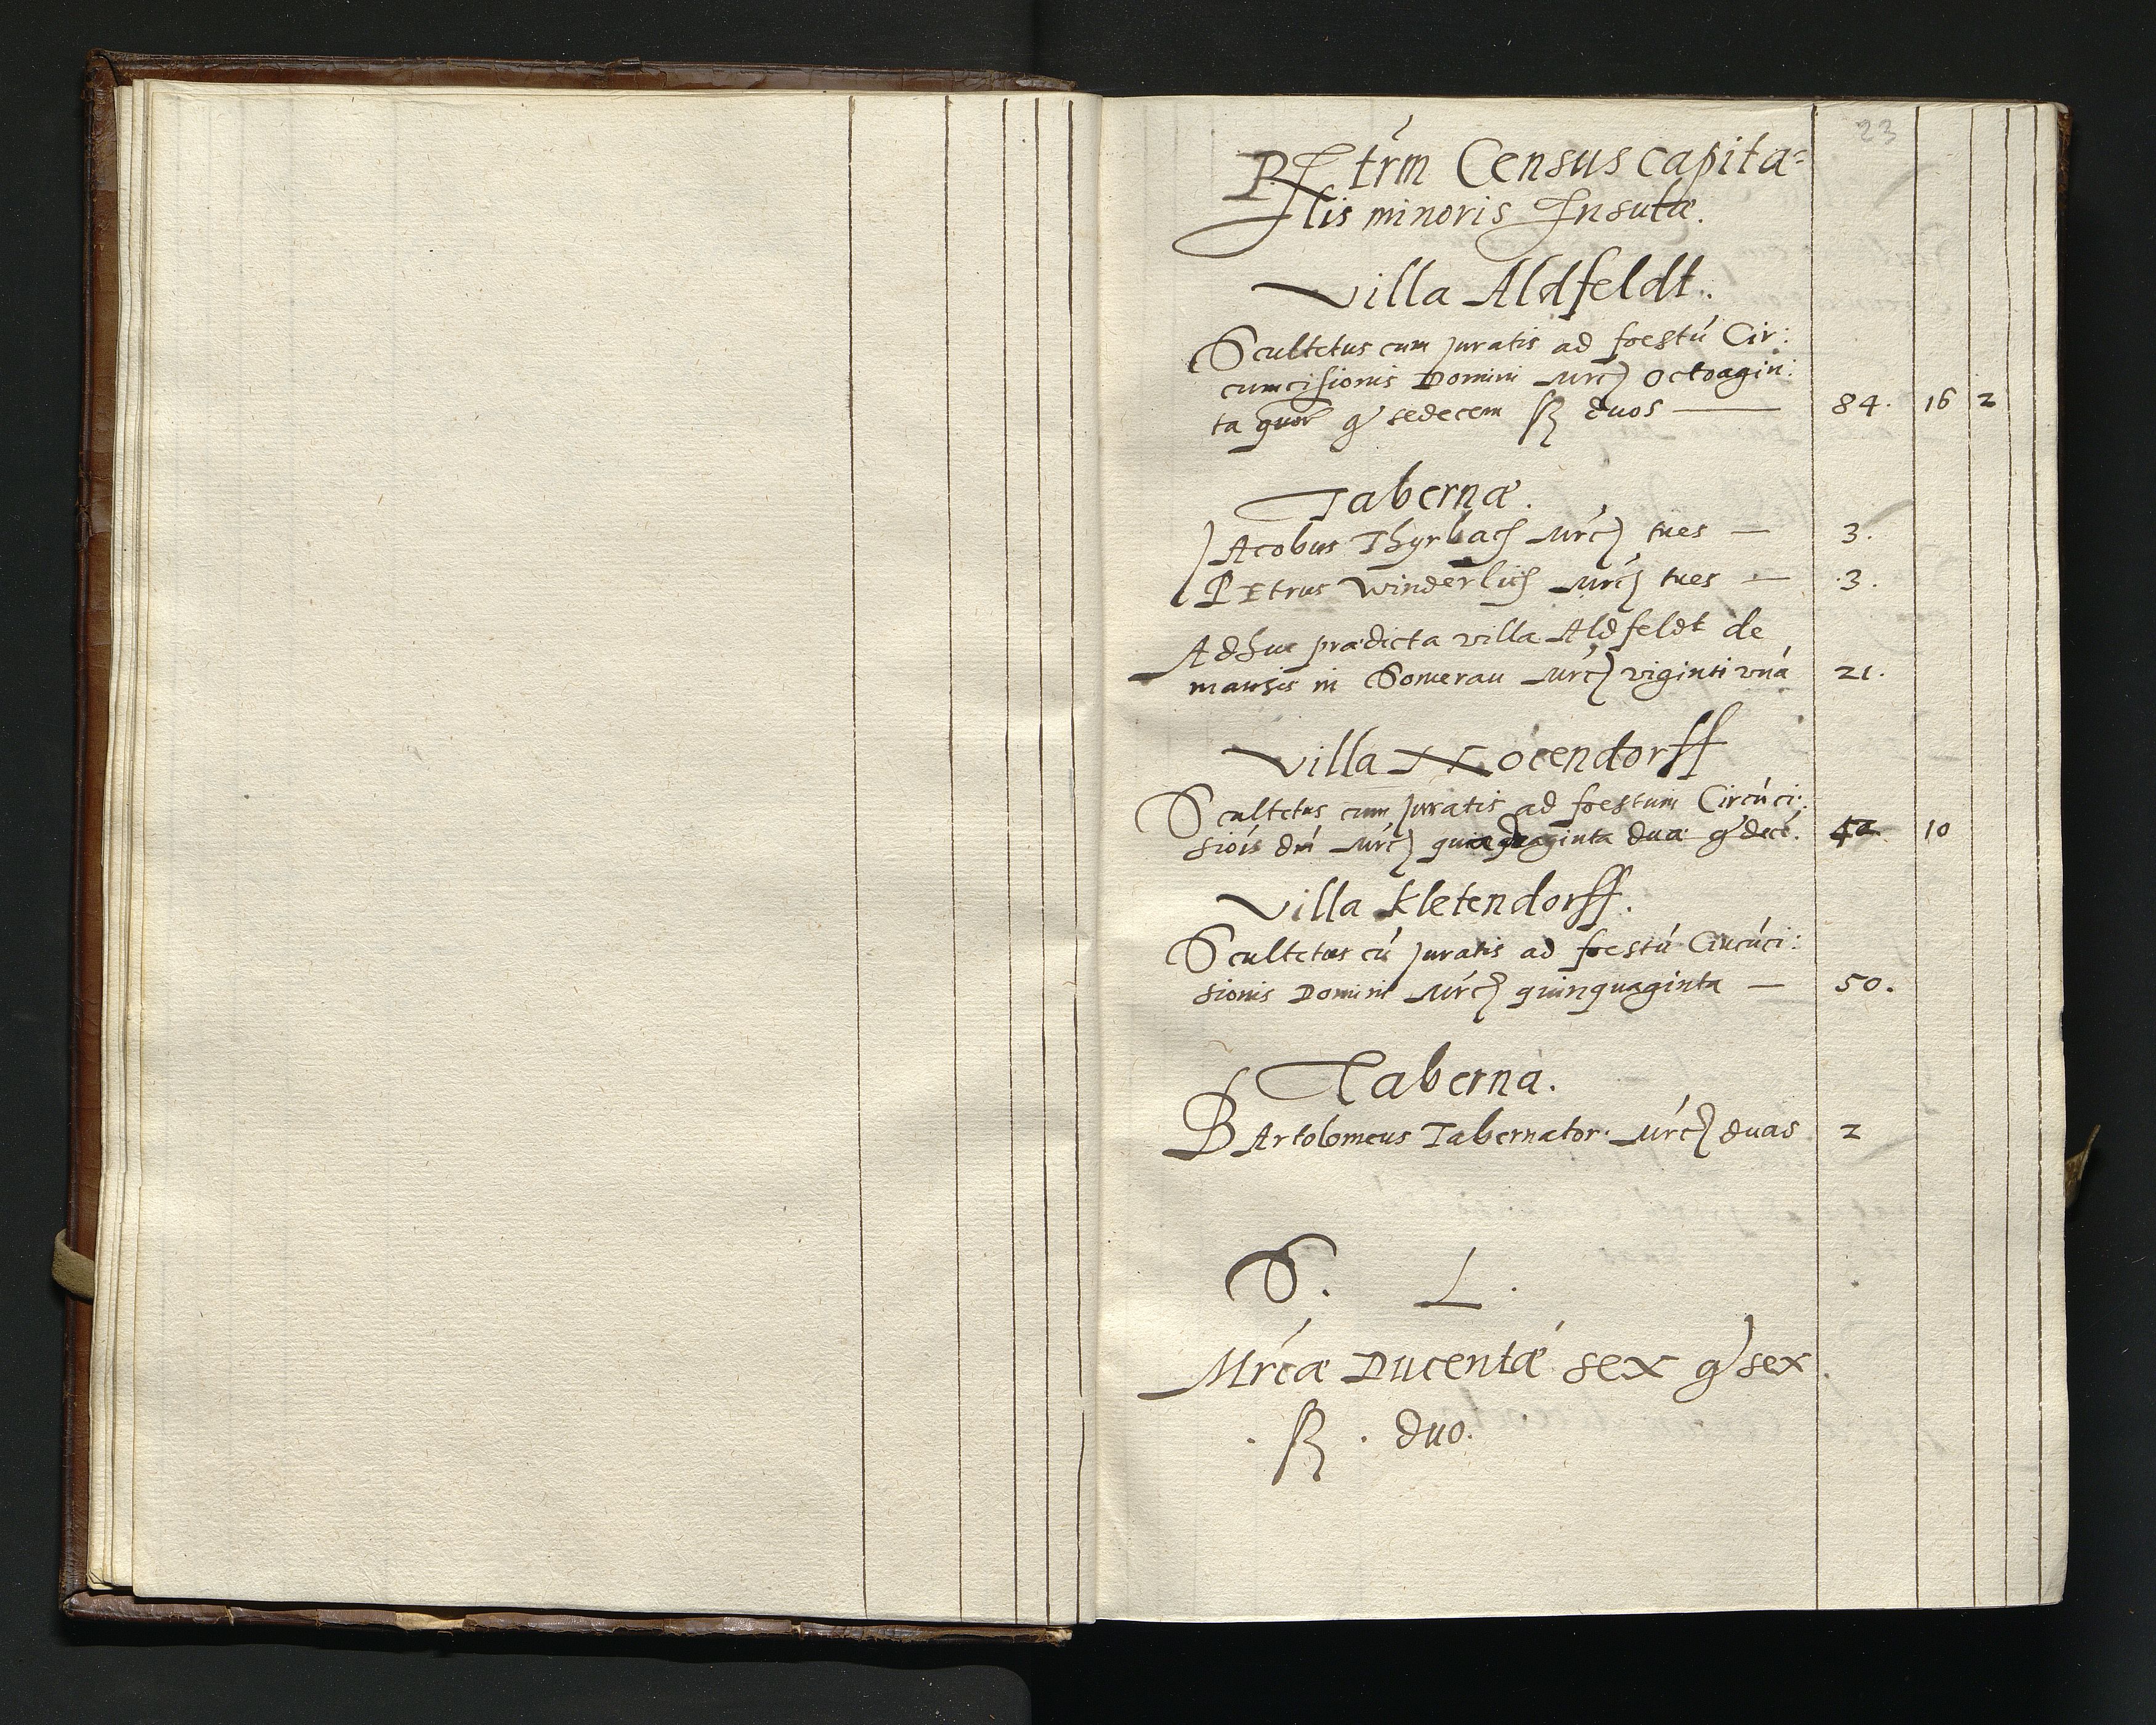 23
REgtrm Census capita=
lis minoris Insulæ.
Villa Aldfeldt.
Scultetus cum juratis ad foestū Cir:
cumcisionis Domini Mrc) octoagin:
ta quor g sedecem ß duos — 84. 16 2
Tabernæ.
JAcobus Thyrbach Mrc) tres — 3.
PEtrus Winderlich Mrc) tres — 3.
Adhuc prædicta villa Aldfeldt de
mansis in Somerau Mrc) viginti vnā 21.
Villa Nocendorff
Scultetus cum juratis ad foestum Circūci:
siōis dnī Mrc) quadraginta dua g decē. 42. 10
Villa Kletendorff.
Scultetus cū juratis ad foestū Circūci:
sionis Domini Mrc) quinquaginta — 50.
Taberna.
BArtolomeus Tabernator Mrc) duas 2
S. L.
Mrcæ Ducentæ sex g sex.
. ß . duo.